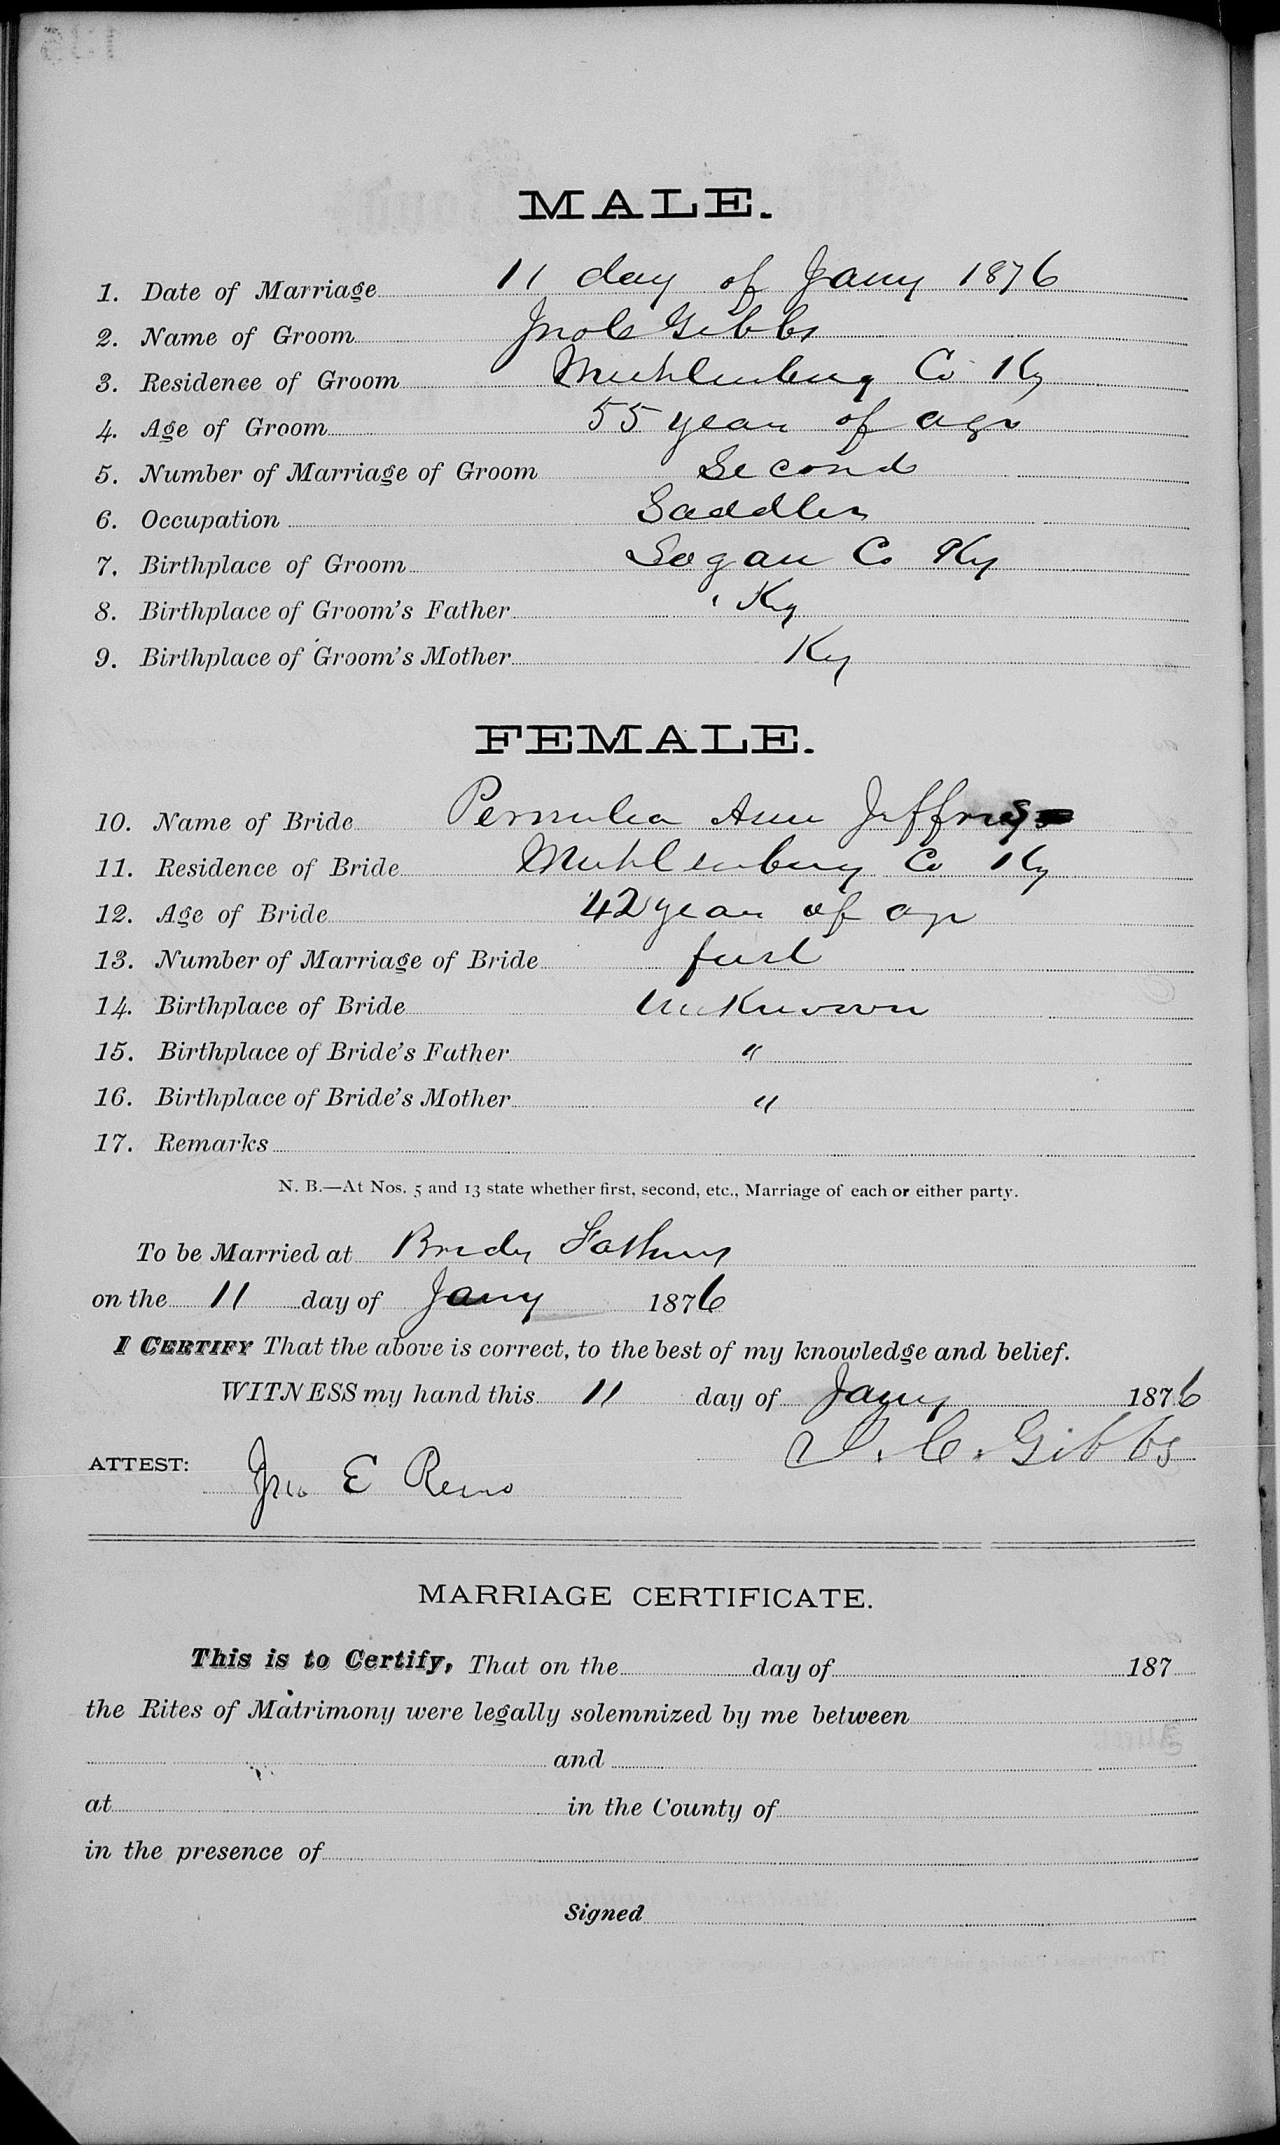 MALE.
1. Date of Marriage 11 day of Jany 1876
2. Name of Groom Jno C Gibbs
3. Residence of Groom Muhlenburg Co Ky
4. Age of Groom 55 year of age
5. Number of Marriage of Groom Second
6. Occupation Saddler
7. Birthplace of Groom Logan Co Ky
8. Birthplace of Groom's Father Ky
9. Birthplace of Groom's Mother Ky
FEMALE.
10. Name of Bride Permelia Ann Jeffreys
11. Residence of Bride Muhlenburg Co Ky
12. Age of Bride 42 year of age
13. Number of Marriage of Bride first
14. Birthplace of Bride Unknown
15. Birthplace of Bride's Father "
16. Birthplace of Bride's Mother "
17. Remarks
N. B.—At Nos. 5 and 13 state whether first, second, etc., Marriage of each or either party.
To be Married at Brides Fathers
on the 11 day of Jany 1876
I CERTIFY That the above is correct, to the best of my knowledge and belief.
WITNESS my hand this 11 day of Jany 1876
J. C. Gibbs
ATTEST: Jno E Reno
MARRIAGE CERTIFICATE.
This is to Certify, That on the day of 187
the Rites of Matrimony were legally solemnized by me between
and
at in the County of
in the presence of
Signed